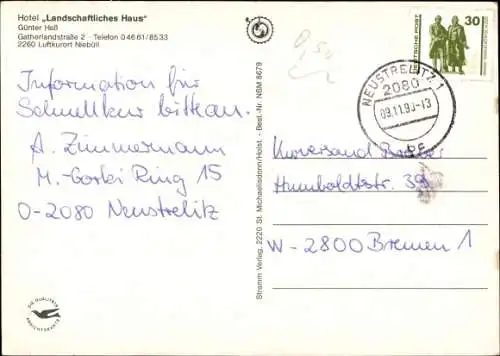 Hotel „Landschaftliches Haus"
Günter Heß
Gatherlandstraße 2 · Telefon 0 46 61 / 85 33
2260 Luftkurort Niebüll
Information für
Schnellkur bitte an.
A. Zimmermann
M.-Gorki Ring 15
O-2080 Neustrelitz
DIE QUALITÄTS
ANSICHTSKARTE
Stramm Verlag, 2220 St. Michaelisdonn/Holst. - Best.-Nr. NBM 8679
0,50
DEUTSCHE POST
30
NEUSTRELITZ 1
2080
09.11.90-13
Kurversand
Humboldtstr. 39
W-2800 Bremen 1